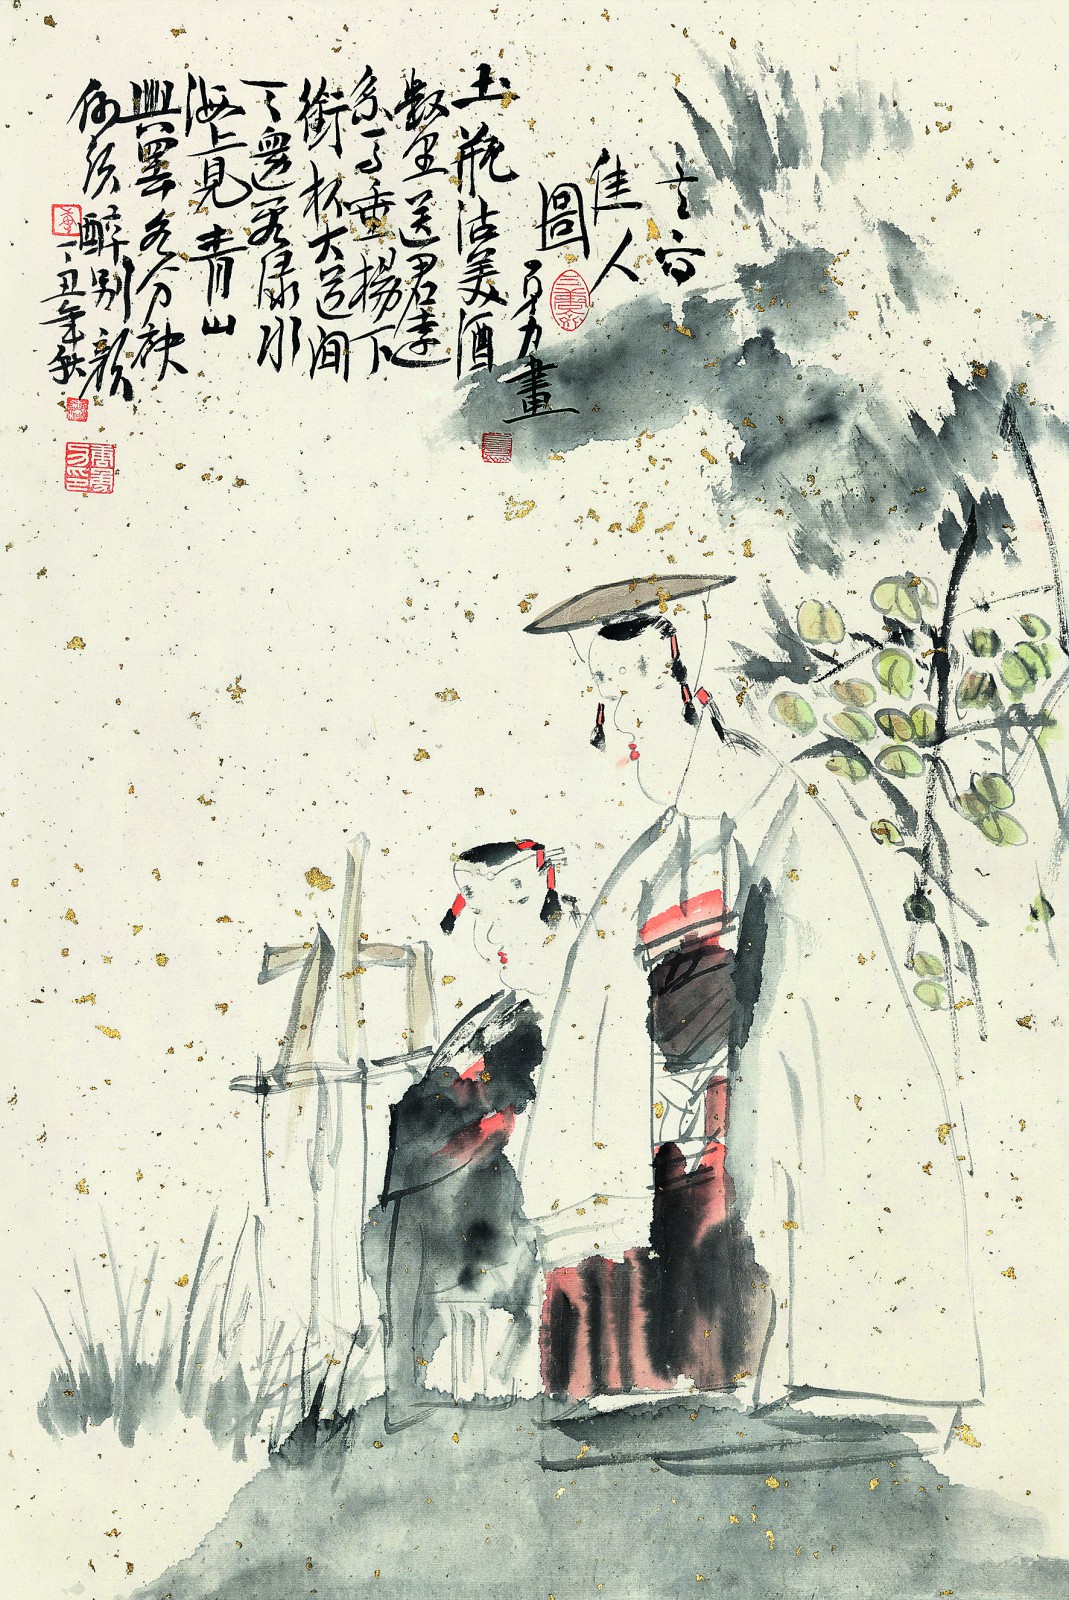 佳人
圖
畫
玉瓶沽美酒
數里送君還
系馬垂楊下
銜杯大道間
天邊看淥水
海上見青山
興罷各分袂
何須醉別顏
丁丑年秋